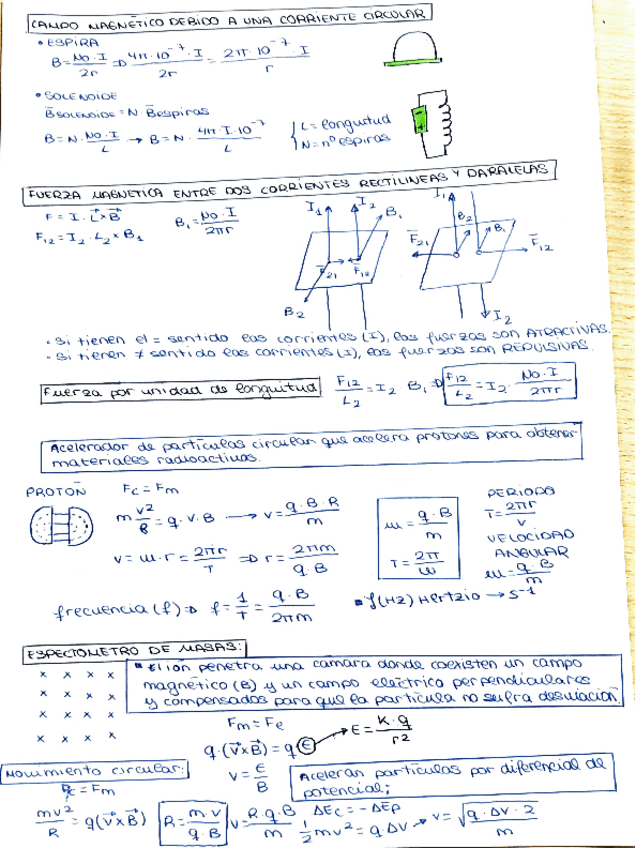 CAMPO MAGNÉTICO DEBIDO A UNA CORRIENTE CIRCULAR
• ESPIRA
B = No·I / 2r ⇒ 4π·10⁻⁷·I / 2r = 2π·10⁻⁷·I / r
• SOLENOIDE
B solenoide = N · B espiras
B = N · No·I / L → B = N · 4π·I·10⁻⁷ / L
L = longuitud
N = nº espiras
FUERZA MAGNETICA ENTRE DOS CORRIENTES RECTILINEAS Y PARALELAS
F = I · L × B
B₁ = No·I / 2πr
F₁₂ = I₂ · L₂ × B₁
I₁ I₂ B₁ F₂₁ F₁₂ B₂
I₁ B₂ B₁ F₂₁ F₁₂ I₂
· Si tienen el = sentido las corrientes (I), las fuerzas son ATRACTIVAS.
· Si tienen ≠ sentido las corrientes (I), las fuerzas son REPULSIVAS.
Fuerza por unidad de longuitud
F₁₂ / L₂ = I₂ B₁ ⇒ F₁₂ / L₂ = I₂ · No·I / 2πr
Acelerador de partículas circular que acelera protones para obtener
materiales radioactivos.
PROTON
Fc = Fm
m v² / R = q·v·B → v = q·B·R / m
v = ω·r = 2πr / T ⇒ r = 2πm / q·B
frecuencia (f) ⇒ f = 1 / T = q·B / 2πm
ω = q·B / m
T = 2π / ω
PERIODO
T = 2πr / v
VELOCIDAD
ANGULAR
ω = q·B / m
• f(Hz) Hertzio → s⁻¹
ESPECTOMETRO DE MASAS:
• El ión penetra una camara donde coexisten un campo
magnético (B) y un campo eléctrico perpendiculares
y compensados para que la partícula no sufra desviación.
x x x x
x x x x
x x x x
x x x x
Fm = Fe
q·(v×B) = q E → E = K·q / r²
v = E / B
Movimiento circular:
Fc = Fm
mv² / R = q(v×B)
R = m·v / q·B
v = R·q·B / m
Aceleran partículas por diferencial de
potencial;
ΔEc = -ΔEp
1/2 mv² = q ΔV → v = √(q·ΔV·2 / m)